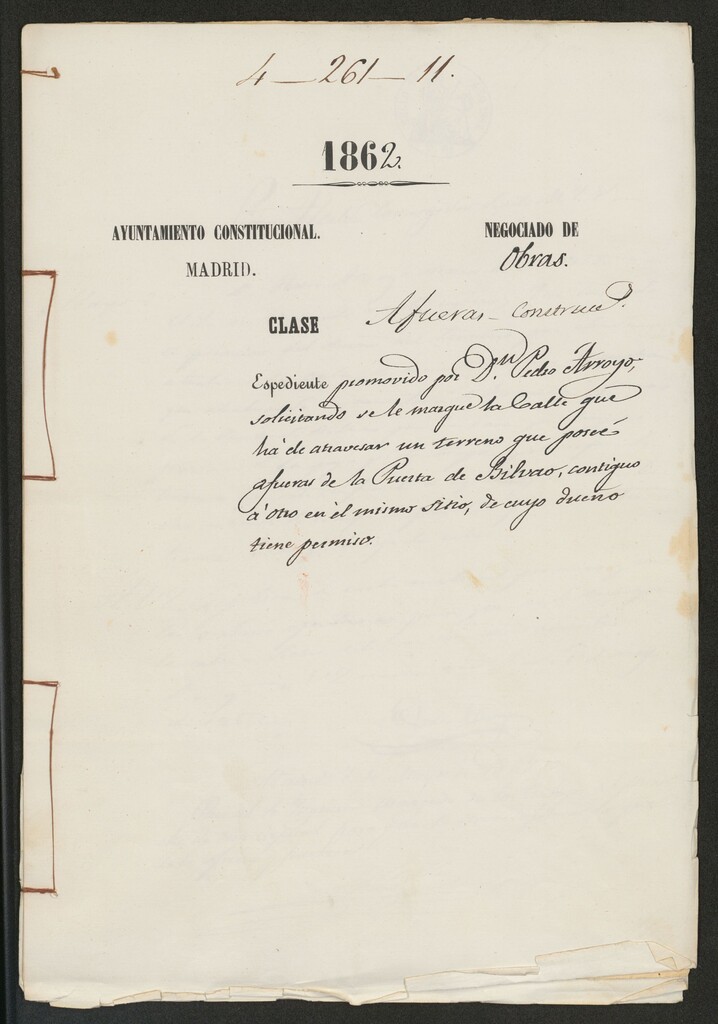 4 — 261 — 11.
1862.
AYUNTAMIENTO CONSTITUCIONAL.
MADRID.
NEGOCIADO DE
Obras.
CLASE Afueras - Construcc.ˢ
Espediente promovido por D.ⁿ Pedro Arroyo,
solicitando se le marque la Calle que
há de atravesar un terreno que poseé
afueras de la Puerta de Bilvao, contiguo
á otro en él mismo sitio, de cuyo dueño
tiene permiso.